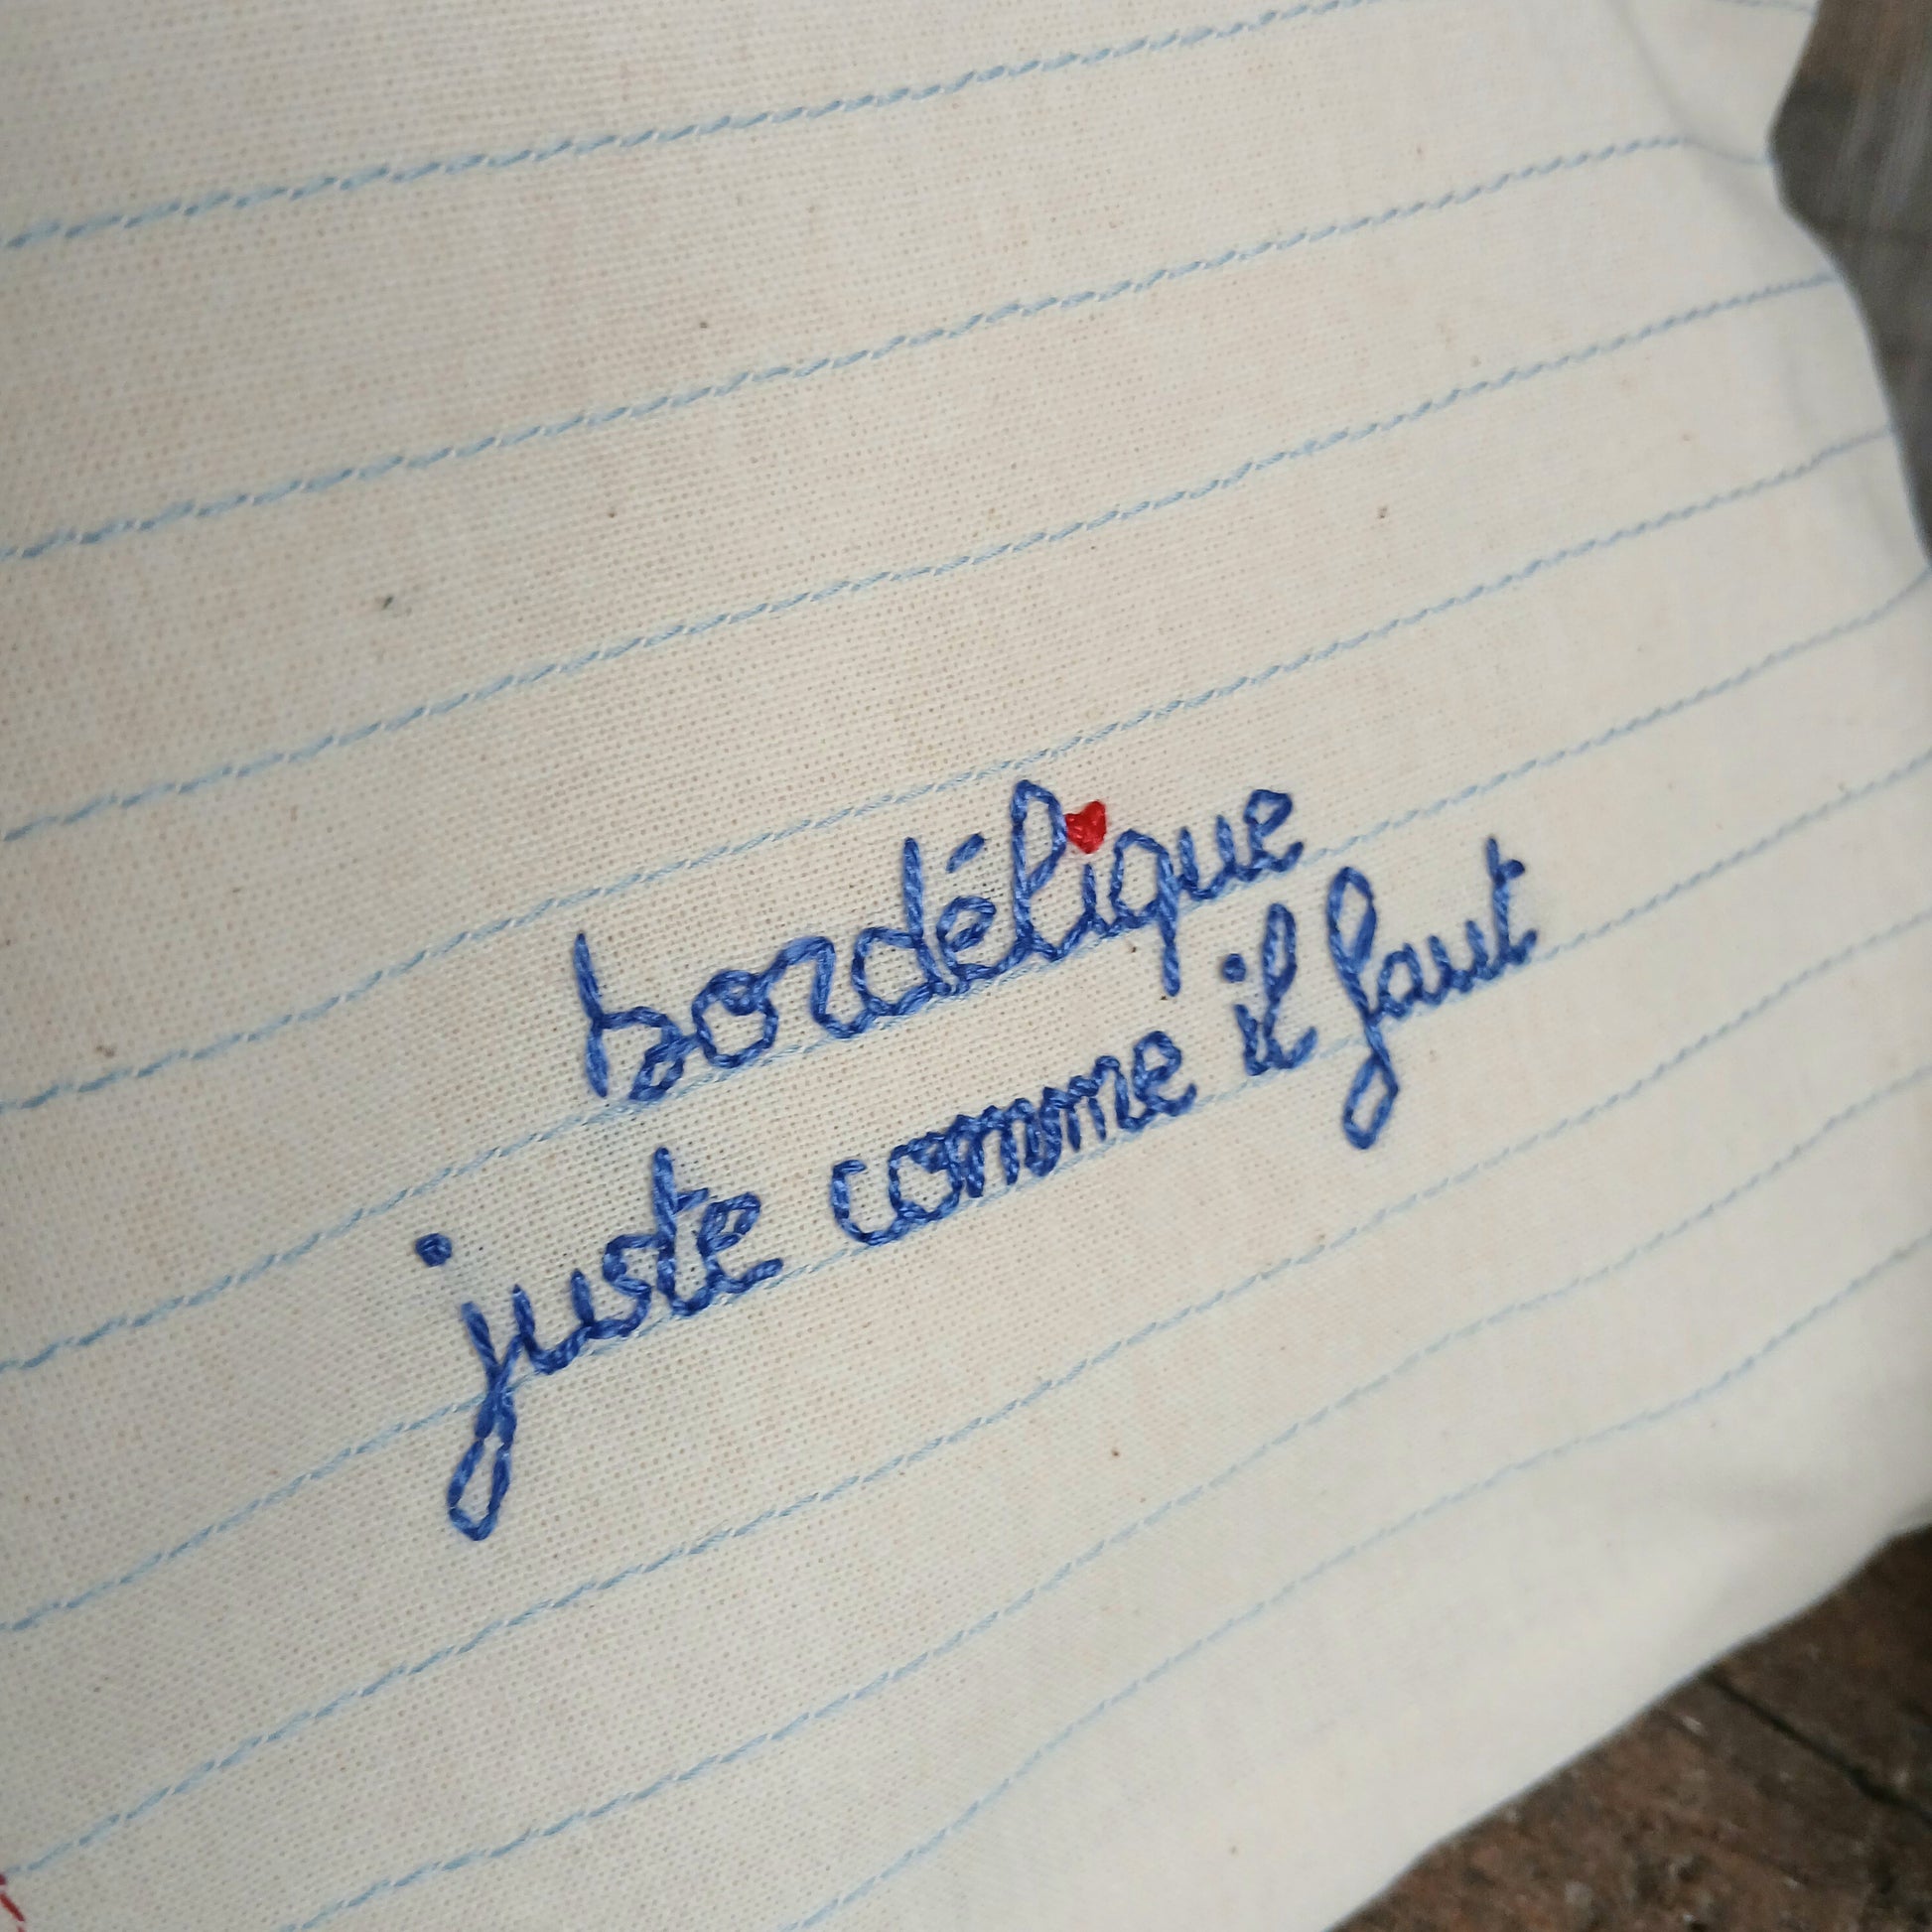 bordélique
juste comme il faut